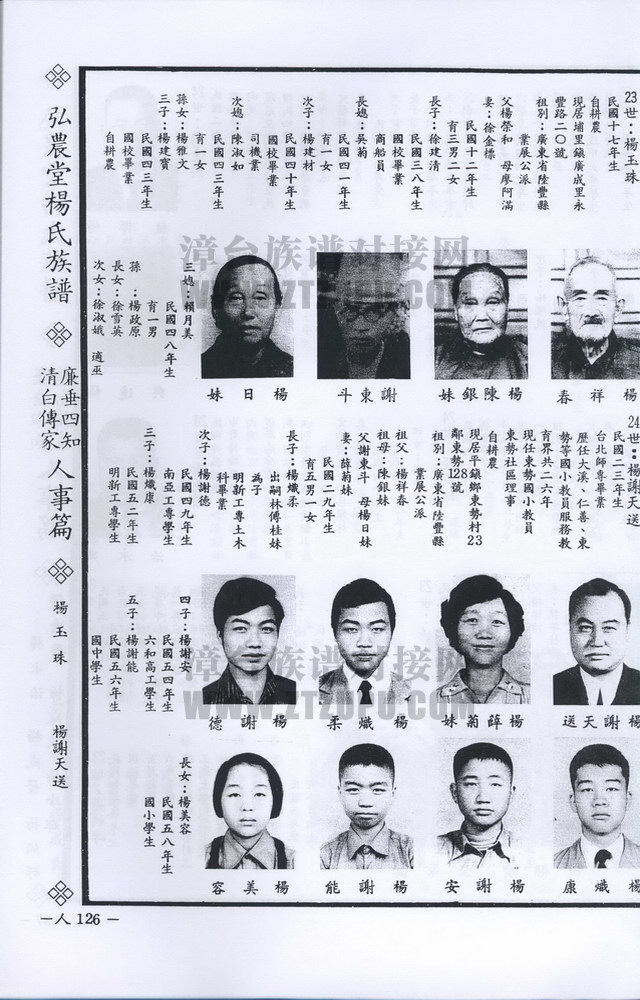 23世：楊玉珠
民國十七年生
自耕農
現居埔里鎮廣成里永
豐路二〇號
祖別：廣東省陸豐縣
業展公派
父楊榮和　母廖阿滿
妻：徐金標
民國十二年生
育三男二女
長子：徐建清
民國三八年生
國校畢業
商船員
長媳：吳菊
民國四一年生
育一女
次子：楊建材
民國四十年生
國校畢業
司機業
次媳：陳淑如
民國四三年生
育一女
孫女：楊雅文
三子：楊建寶
民國四三年生
國校畢業
自耕農
三媳：賴月美
民國四八年生
育一男
孫：楊政原
長女：徐雪英
次女：徐淑娥　適巫
楊祥春
楊陳銀妹
謝東斗
楊日妹
24世：楊謝天送
民國二三年生
台北師專畢業
歷任大溪、仁善、東
勢等國小教員服務教
育界共二六年
現任東勢國小教員
東勢社區理事
自耕農
現居平鎮鄉東勢村23
鄰東勢128號
祖別：廣東省陸豐縣
業展公派
祖父：楊祥春
祖母：陳銀妹
父謝東斗　母楊日妹
妻：薛菊妹
民國二九年生
育五男一女
長子：楊熾柔
出嗣林傅桂妹
為子
明新工專土木
科畢業
次子：楊謝德
民國四九年生
南亞工專學生
三子：楊熾康
民國五二年生
明新工專學生
四子：楊謝安
民國五四年生
六和高工學生
五子：楊謝能
民國五六年生
國中學生
長女：楊美容
民國五八年生
國小學生
楊謝天送
楊薛菊妹
楊熾柔
楊謝德
楊熾康
楊謝安
楊謝能
楊美容
弘農堂楊氏族譜
廉垂四知
清白傳家
人事篇
楊玉珠
楊謝天送
—人 126—
漳台族谱对接网
WWW.ZTZUPU.COM
漳台族谱对接网
WWW.ZTZUPU.COM